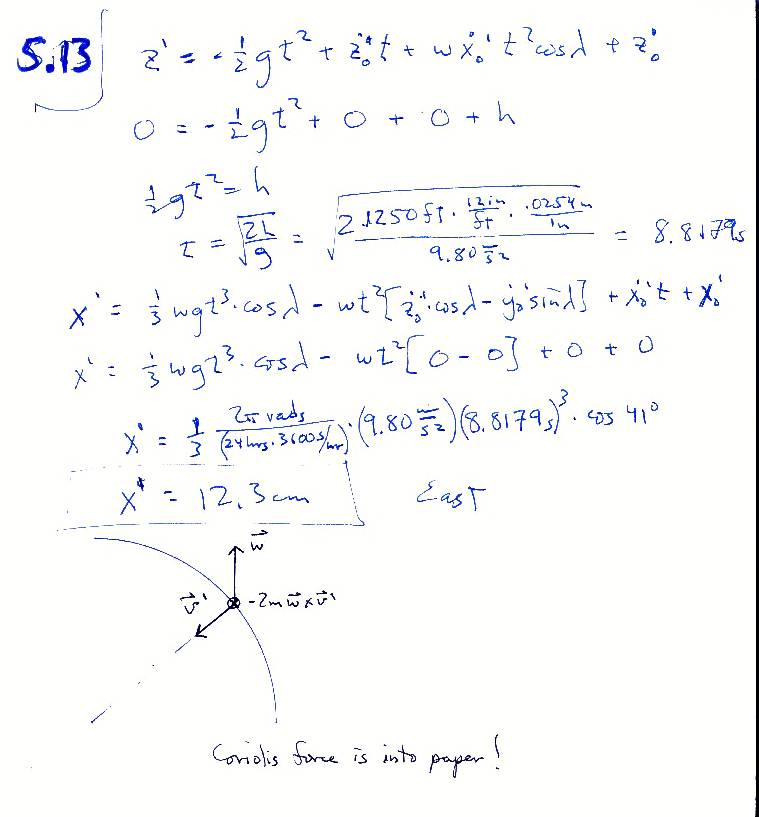 5.13 z' = -½gt² + ż₀'t + ωẋ₀'t²cosλ + z₀'
0 = -½gt² + 0 + 0 + h
½gt² = h
t = √(2h/g) = √(2·1250ft · 12in/ft · .0254m/in / 9.80 m/s²) = 8.8179s
x' = ⅓ωgt³·cosλ - ωt²[ż₀'·cosλ - ẏ₀'sinλ] + ẋ₀'t + x₀'
x' = ⅓ωgt³·cosλ - ωt²[0 - 0] + 0 + 0
x' = ⅓ 2π rads/(24hrs·3600s/hr) · (9.80 m/s²)(8.8179s)³ · cos 41°
x' = 12.3cm East
ω⃗
v⃗' -2mω⃗×v⃗'
Coriolis force is into paper!